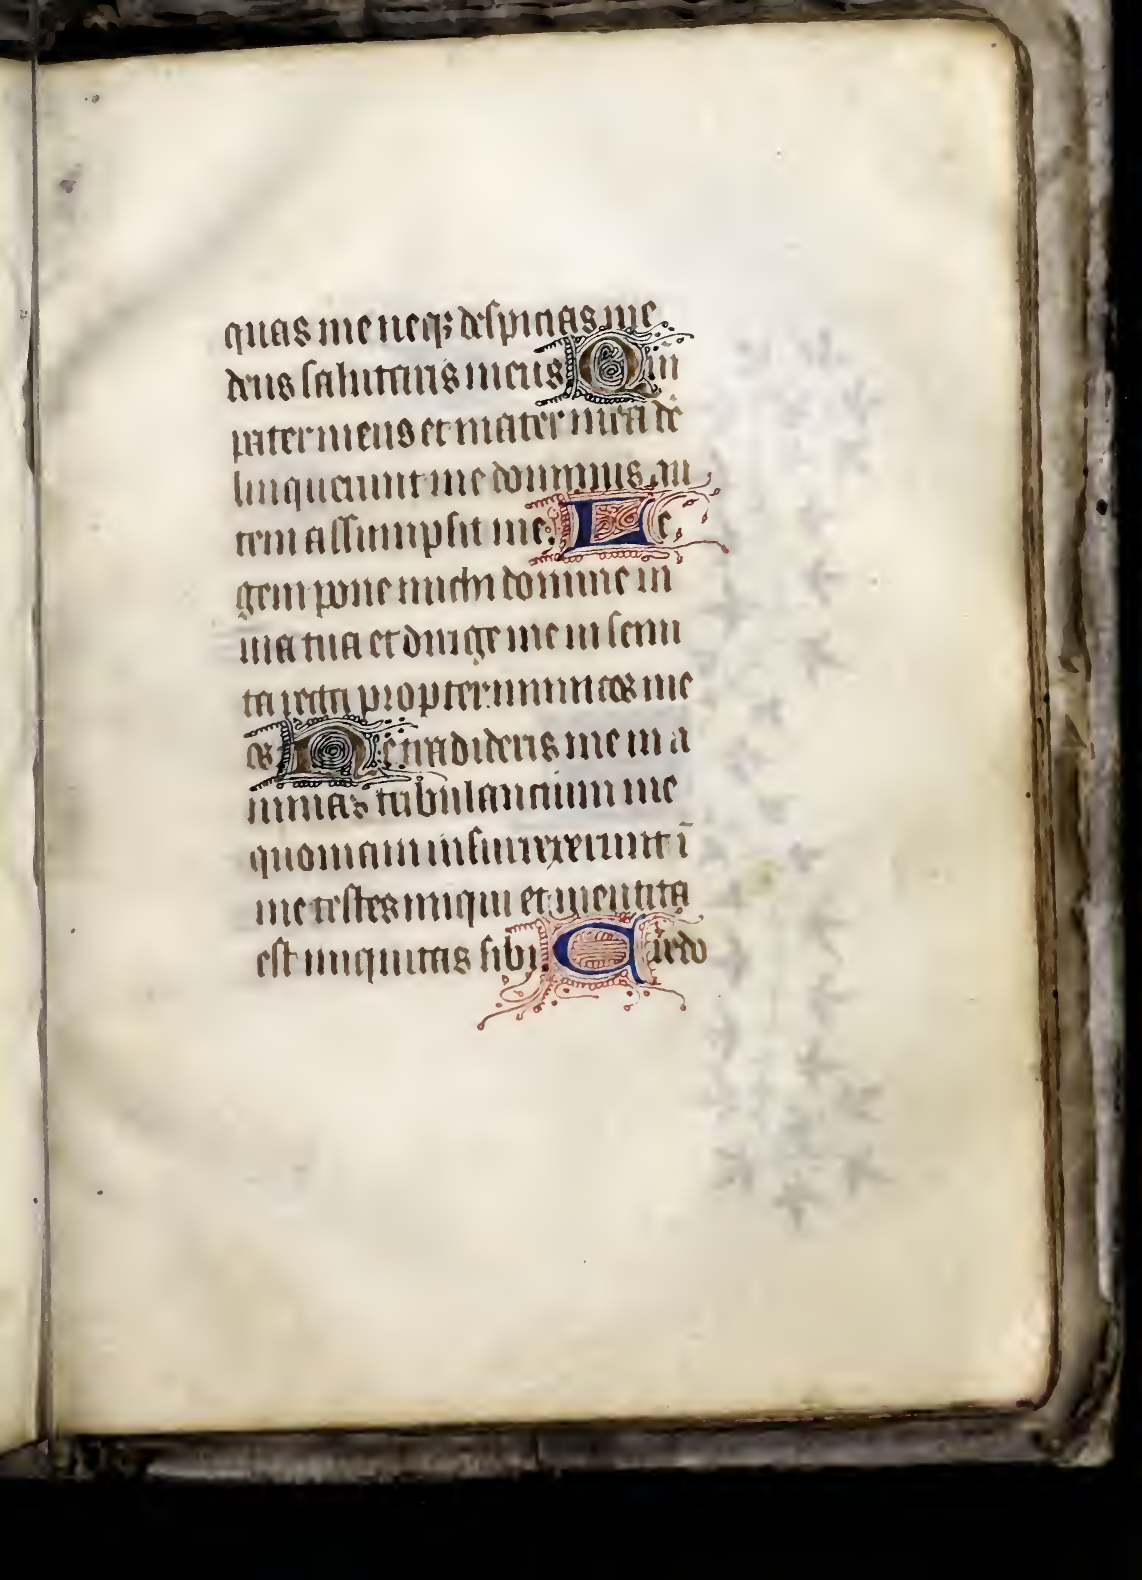 quas me neqꝫ despicias me
deus salutaris meus Qm̄
pater meus et mater mea de
linquerunt me dominus au
tem assumpsit me. Le
gem pone michi domine in
uia tua et dirige me in semi
ta recta propter inimicos me
os Ne tradideris me in a
nimas tribulancium me
quoniam insurrexerunt ī
me testes iniqui et mentita
est iniquitas sibi Credo